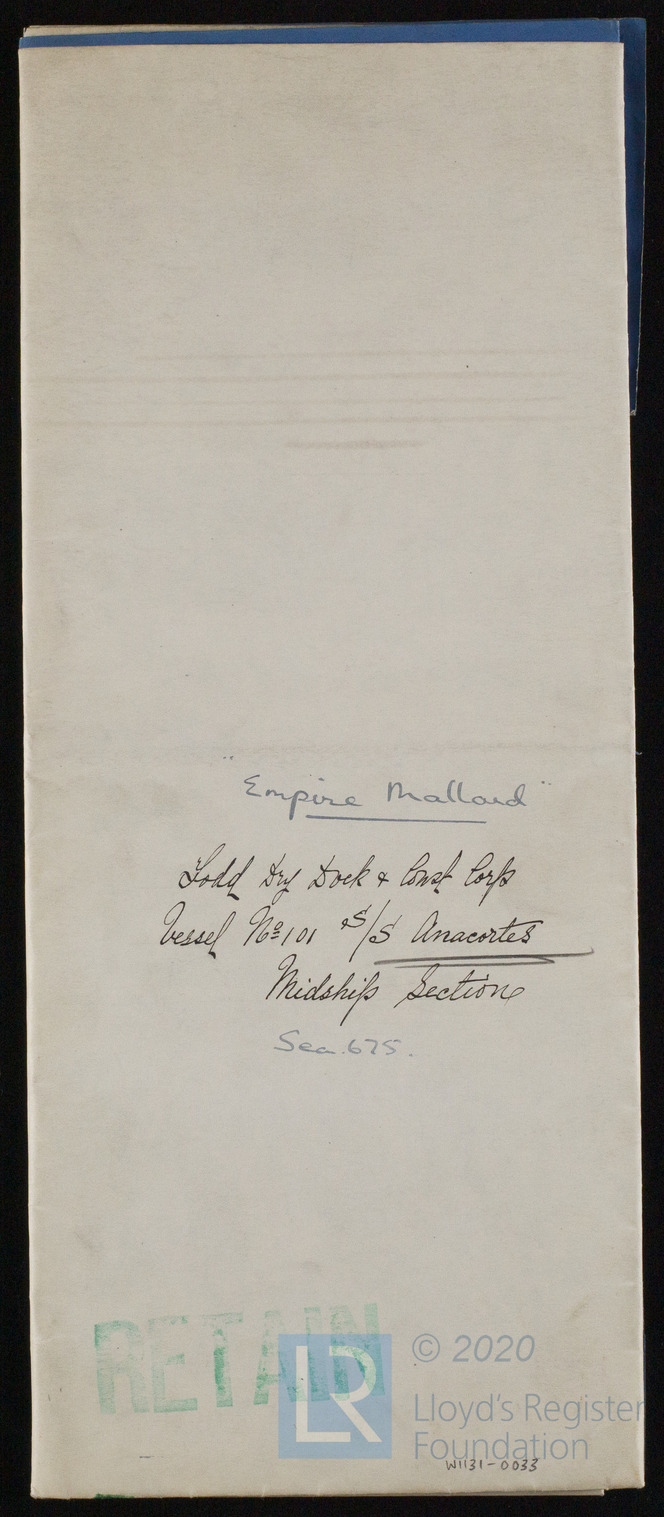 "Empire Mallard"
Todd Dry Dock & Const Corp
Vessel No 101 S/S Anacortes
Midship Section
Sea. 675.
RETAIN
LR
© 2020
Lloyd's Register
Foundation
W1131-0033